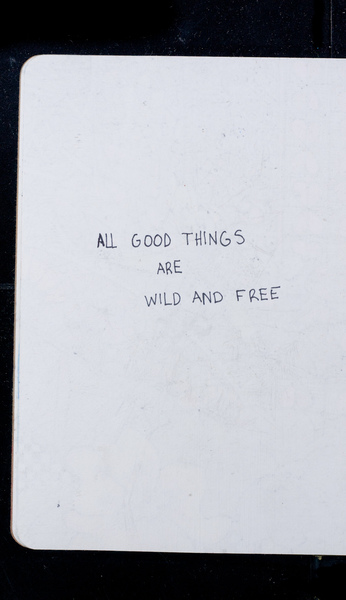 ALL GOOD THINGS
ARE
WILD AND FREE